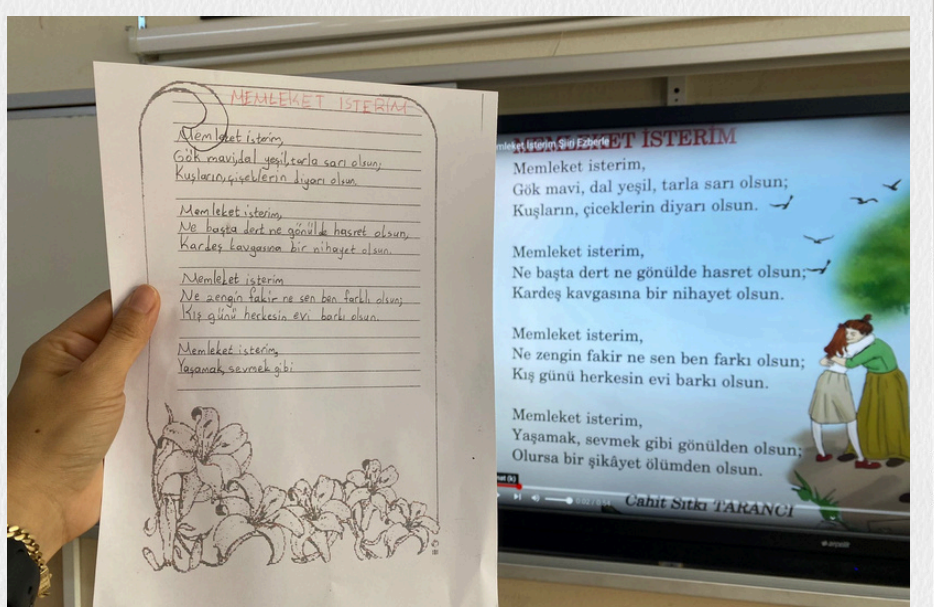 MEMLEKET İSTERİM
Memleket isterim,
Gök mavi,dal yeşil,tarla sarı olsun;
Kuşların,çiçeklerin diyarı olsun.
Memleket isterim,
Ne başta dert ne gönülde hasret olsun,
Kardeş kavgasına bir nihayet olsun.
Memleket isterim
Ne zengin fakir ne sen ben farklı olsun;
Kış günü herkesin evi barkı olsun.
Memleket isterim,
Yaşamak, sevmek gibi
MEMLEKET İSTERİM
mleket İsterim Şiiri Ezberle
Memleket isterim,
Gök mavi, dal yeşil, tarla sarı olsun;
Kuşların, çiceklerin diyarı olsun.
Memleket isterim,
Ne başta dert ne gönülde hasret olsun;
Kardeş kavgasına bir nihayet olsun.
Memleket isterim,
Ne zengin fakir ne sen ben farkı olsun;
Kış günü herkesin evi barkı olsun.
Memleket isterim,
Yaşamak, sevmek gibi gönülden olsun;
Olursa bir şikâyet ölümden olsun.
Cahit Sıtkı TARANCI
arçelik